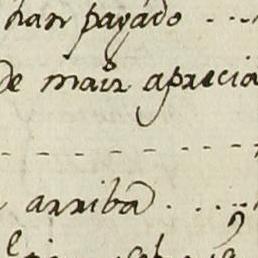 han pagado ...
de maiz aprecia
arriba ....